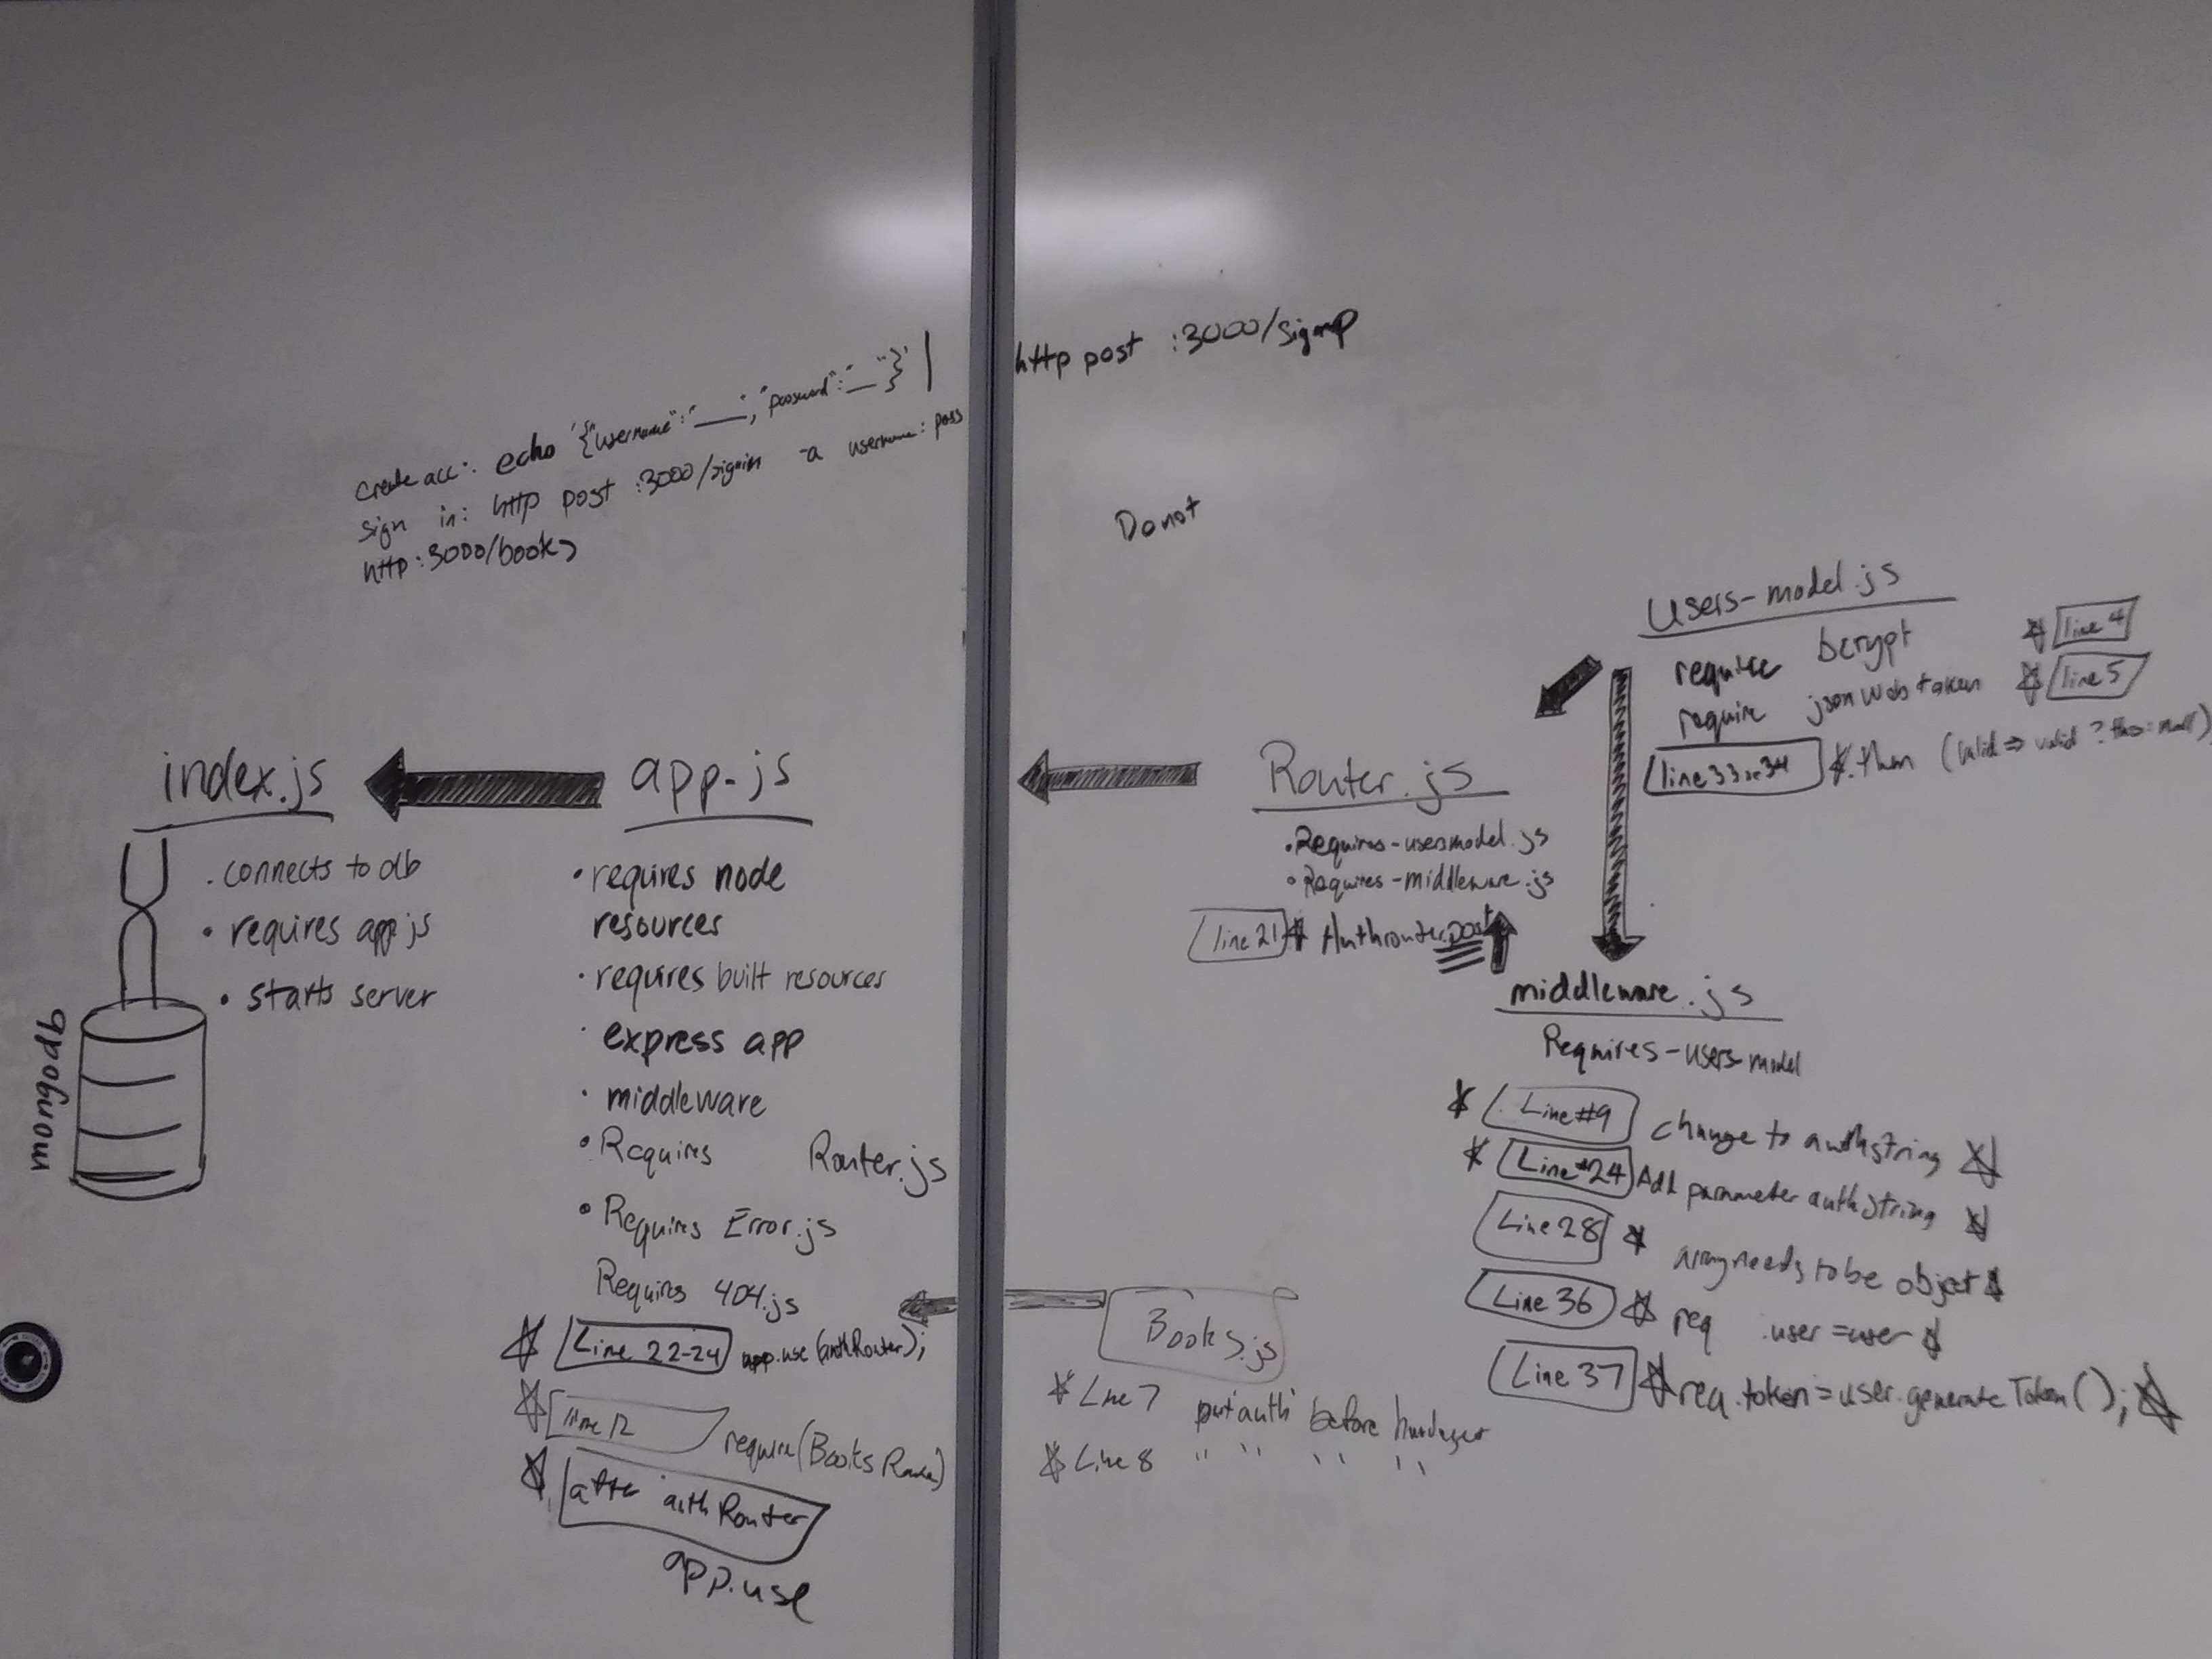 create acc: echo '{"username":"___","password":"__"}' | http post :3000/signup
sign in: http post :3000/signin -a username:pass
http :3000/books
Do not
index.js
. connects to db
• requires app.js
• starts server
mongodb
app.js
• requires node
resources
• requires built resources
• express app
• middleware
• Requires Router.js
• Requires Error.js
Requires 404.js
Line 22-24 app.use(authRouter);
line 12 require(Books
after authRouter
app.use
Router.js
• Requires-usersmodel.js
• Requires-middleware.js
line 21 Authrouter.post
Books.js
Line 7 put 'auth' before
Line 8 " " " "
Users-model.js
require bcrypt line 4
require jsonwebtoken line 5
line 33 or 34 .then (valid => valid ? this:null)
middleware.js
Requires-users-model
Line #9 change to authstring
Line #24 Add parameter authString
Line 28 array needs to be object
Line 36 req .user = user
Line 37 req.token = user.generateToken();